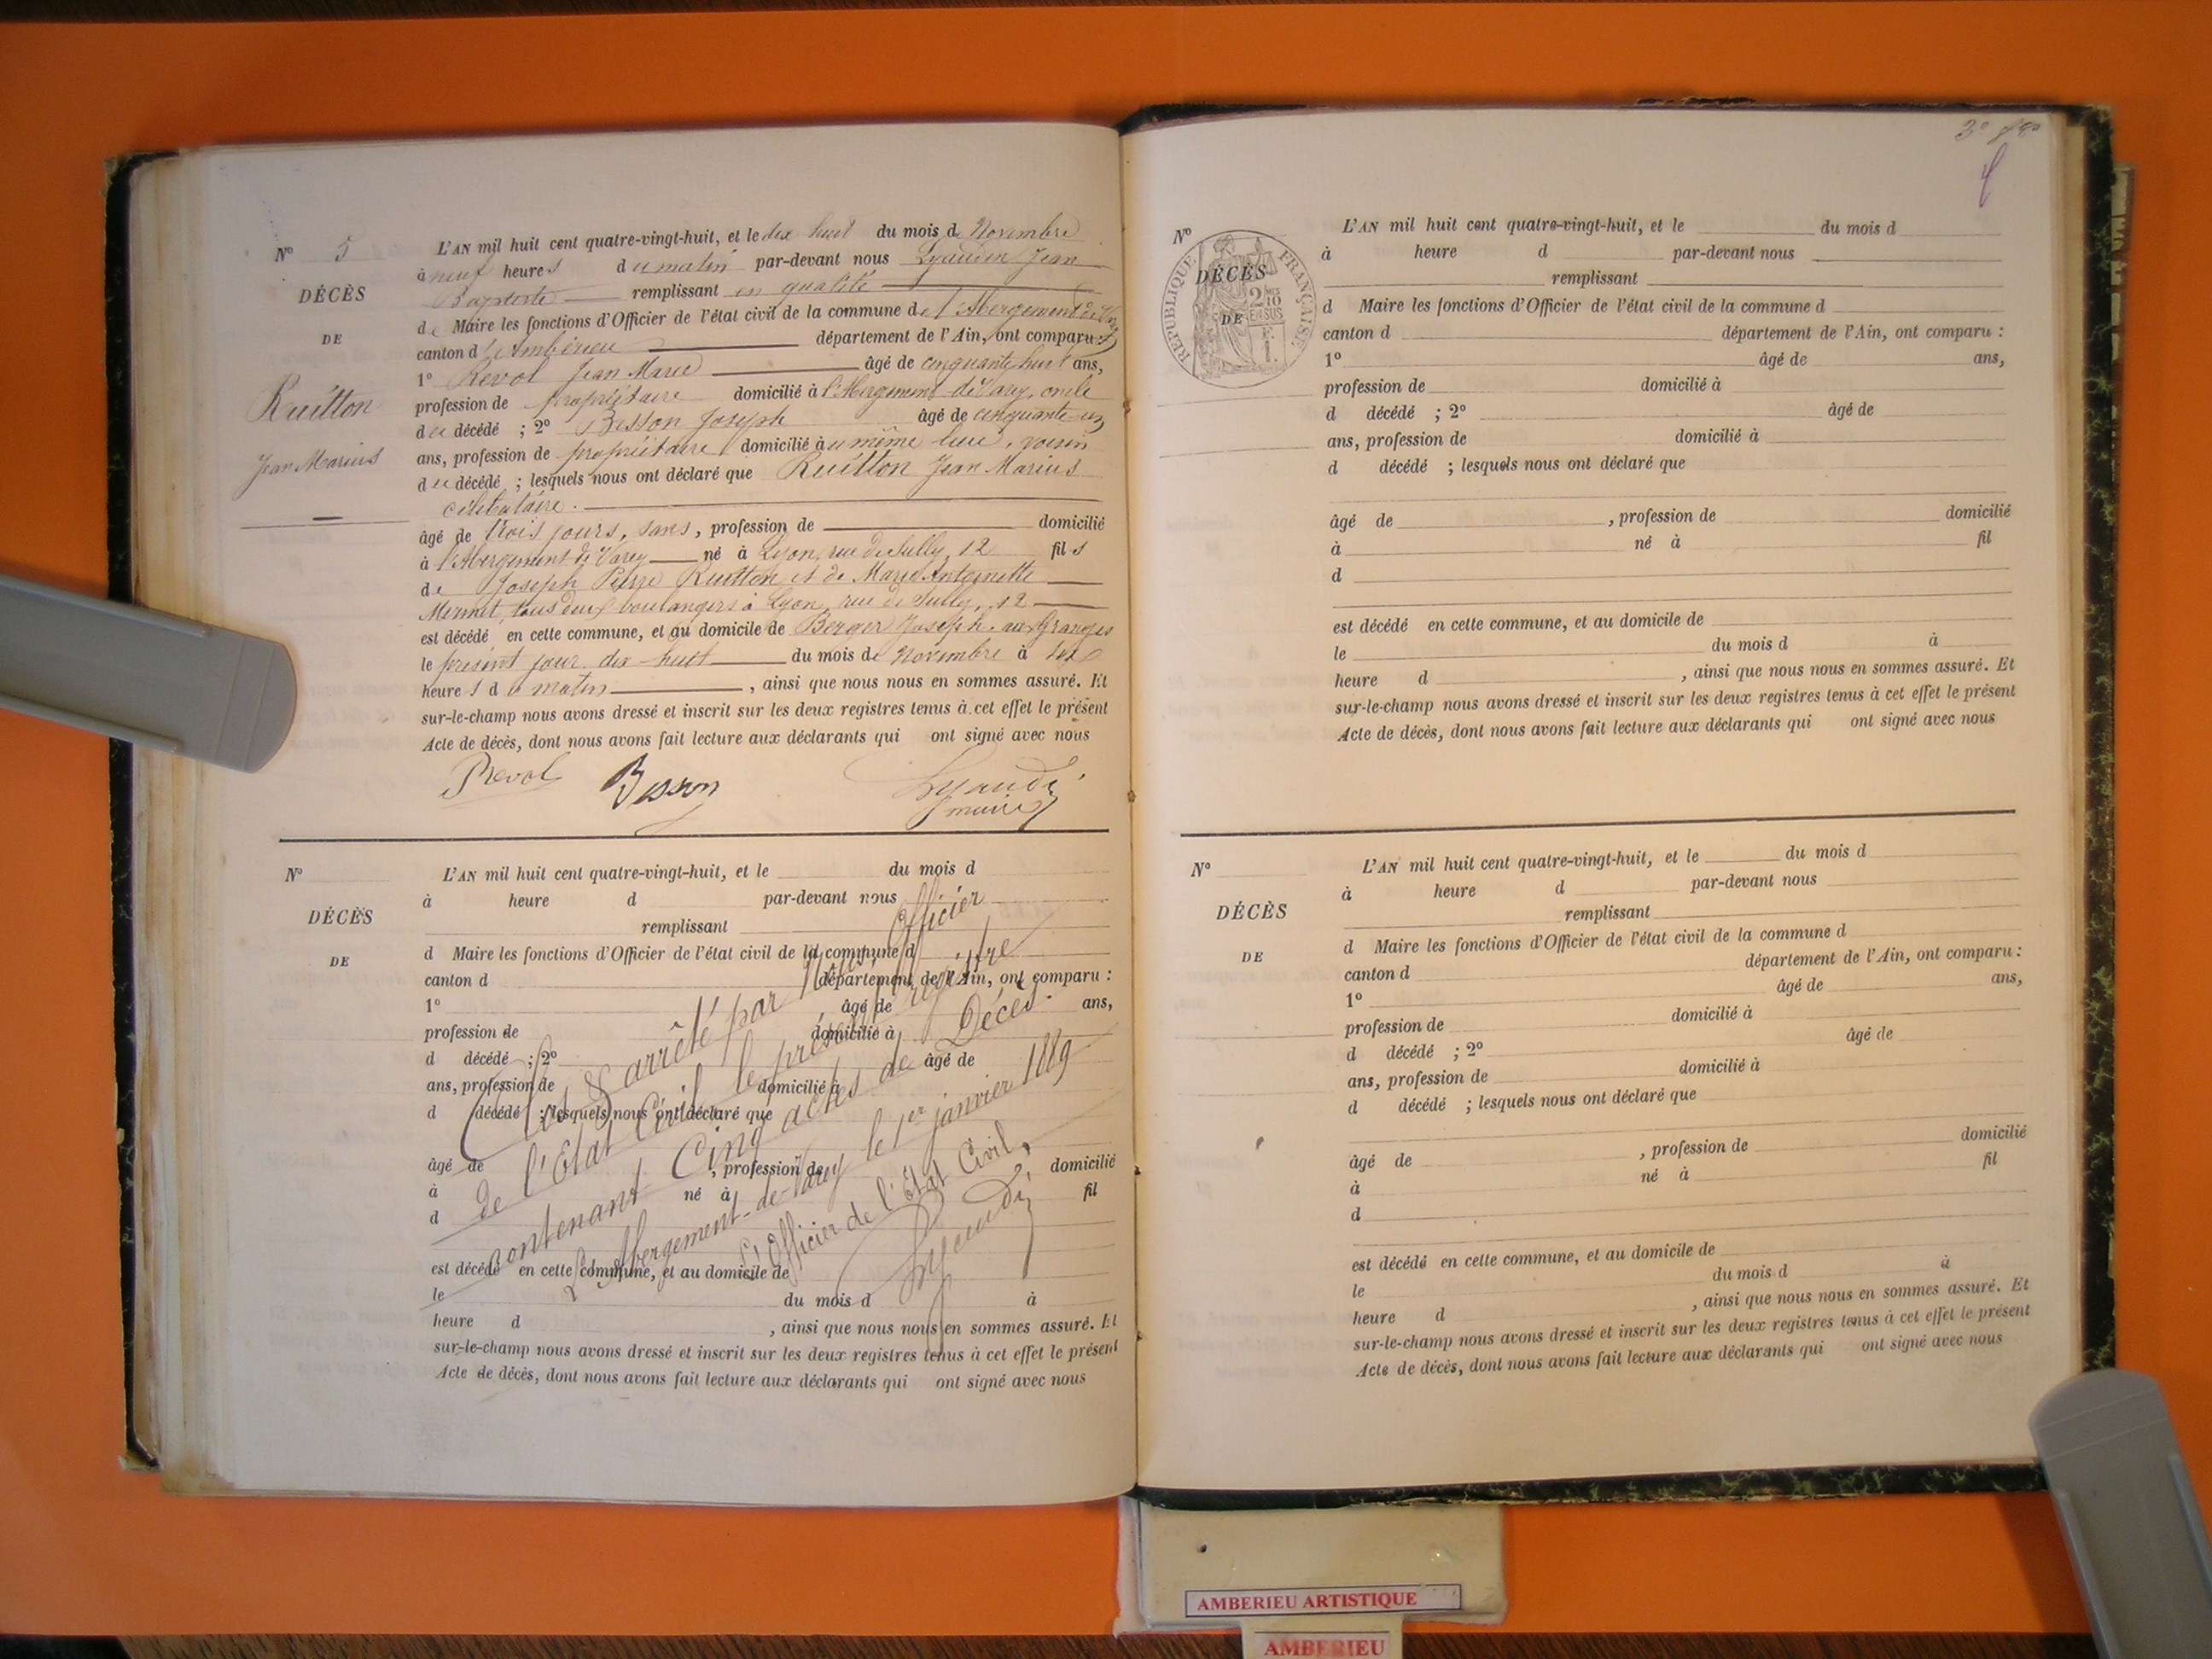 N° 5
DÉCÈS
DE
Ruitton
Jean Marius
L'AN mil huit cent quatre-vingt-huit, et le dix huit du mois de Novembre
à neuf heures du matin par-devant nous Lyaudin Jean
Baptiste remplissant en qualité
de Maire les fonctions d'Officier de l'état civil de la commune de l'Abergement de Varey
canton d'Ambérieu département de l'Ain, ont comparu :
1° Revol Jean Marie âgé de cinquante huit ans,
profession de propriétaire domicilié à l'Abergement de Varey, oncle
du décédé ; 2° Besson Joseph âgé de cinquante un
ans, profession de propriétaire domicilié au même lieu, voisin
du décédé ; lesquels nous ont déclaré que Ruitton Jean Marius
célibataire.
âgé de trois jours, sans, profession de domicilié
à l'Abergement de Varey né à Lyon, rue de Sully, 12 fils
de Joseph Pierre Ruitton et de Marie Antoinette
Mermet, tous deux boulangers à Lyon, rue de Sully, 12
est décédé en cette commune, et au domicile de Berger Joseph, aux Granges
le présent jour dix-huit du mois de Novembre à
heures du matin, ainsi que nous nous en sommes assuré. Et
sur-le-champ nous avons dressé et inscrit sur les deux registres tenus à cet effet le présent
Acte de décès, dont nous avons fait lecture aux déclarants qui ont signé avec nous
Revol Besson Lyaudin
maire
N°
DÉCÈS
DE
L'AN mil huit cent quatre-vingt-huit, et le du mois d
à heure d par-devant nous
remplissant
d Maire les fonctions d'Officier de l'état civil de la commune d
canton d département de l'Ain, ont comparu :
1° âgé de ans,
profession de domicilié à
d décédé ; 2° âgé de
ans, profession de domicilié à
d décédé ; lesquels nous ont déclaré que
âgé de , profession de domicilié
à né à fil
d
est décédé en cette commune, et au domicile de
le du mois d à
heure d , ainsi que nous nous en sommes assuré. Et
sur-le-champ nous avons dressé et inscrit sur les deux registres tenus à cet effet le présent
Acte de décès, dont nous avons fait lecture aux déclarants qui ont signé avec nous
Clos & arrêté par Nous, Officier
de l'Etat Civil le présent registre
contenant Cinq actes de Décès.
L'Abergement-de-Varey le 1er janvier 1889
L'Officier de l'État Civil,
Lyaudin
3e
N°
RÉPUBLIQUE FRANÇAISE
2/10 EN SUS
F. 1.
DÉCÈS
DE
L'AN mil huit cent quatre-vingt-huit, et le du mois d
à heure d par-devant nous
remplissant
d Maire les fonctions d'Officier de l'état civil de la commune d
canton d département de l'Ain, ont comparu :
1° âgé de ans,
profession de domicilié à
d décédé ; 2° âgé de
ans, profession de domicilié à
d décédé ; lesquels nous ont déclaré que
âgé de , profession de domicilié
à né à fil
d
est décédé en cette commune, et au domicile de
le du mois d à
heure d , ainsi que nous nous en sommes assuré. Et
sur-le-champ nous avons dressé et inscrit sur les deux registres tenus à cet effet le présent
Acte de décès, dont nous avons fait lecture aux déclarants qui ont signé avec nous
N°
DÉCÈS
DE
L'AN mil huit cent quatre-vingt-huit, et le du mois d
à heure d par-devant nous
remplissant
d Maire les fonctions d'Officier de l'état civil de la commune d
canton d département de l'Ain, ont comparu :
1° âgé de ans,
profession de domicilié à
d décédé ; 2° âgé de
ans, profession de domicilié à
d décédé ; lesquels nous ont déclaré que
âgé de , profession de domicilié
à né à fil
d
est décédé en cette commune, et au domicile de
le du mois d à
heure d , ainsi que nous nous en sommes assuré. Et
sur-le-champ nous avons dressé et inscrit sur les deux registres tenus à cet effet le présent
Acte de décès, dont nous avons fait lecture aux déclarants qui ont signé avec nous
AMBERIEU ARTISTIQUE
AMBERIEU